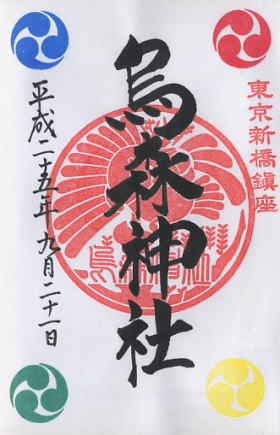 東京新橋鎮座
烏森神社
平成二十五年九月二十一日